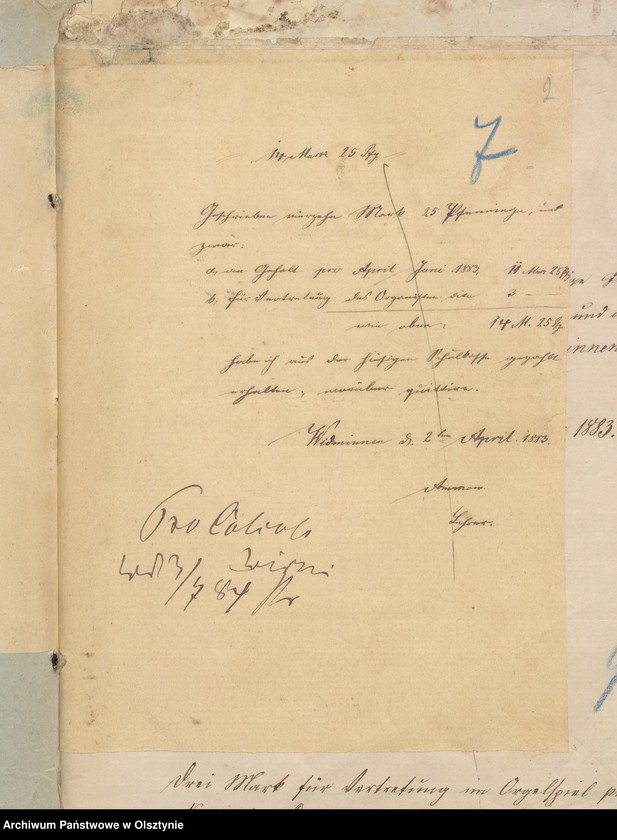 2
7
14 Mark 25 Pfg
Geschrieben vierzehn Mark 25 Pfennige, und
zwar:
a, an Gehalt pro April Juni 1883. 11 Mark 25 Pfg
b, für Vertretung des Organisten 3 - -
wie oben: 14 M. 25 Pf
habe ich aus der hiesigen Schulkasse gezahlt
erhalten, worüber quittire.
Widminnen d. 2ten April 1883.
Lehrer.
Pro Calculo
7 84
und
innen
1883.
Drei Mark für Vertretung im Orgelspiel
Archiwum Państwowe w Olsztynie